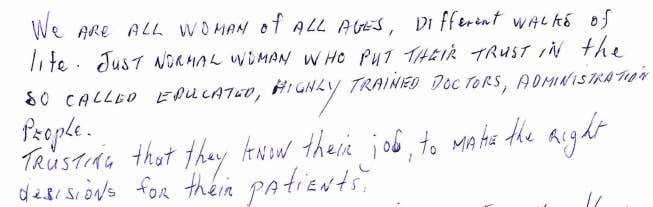 We ARE ALL WOMAN of ALL AGES, DIfferent WALKS of
life. JUST NORMAL WOMAN WHO PUT THEIR TRUST IN the
SO CALLED EDUCATED, HIGHLY TRAINED DOCTORS, ADMINISTRATION
People.
TRUSTING that they KNOW their job, to MAKE the Right
desisioNs foR their PAtieNts.